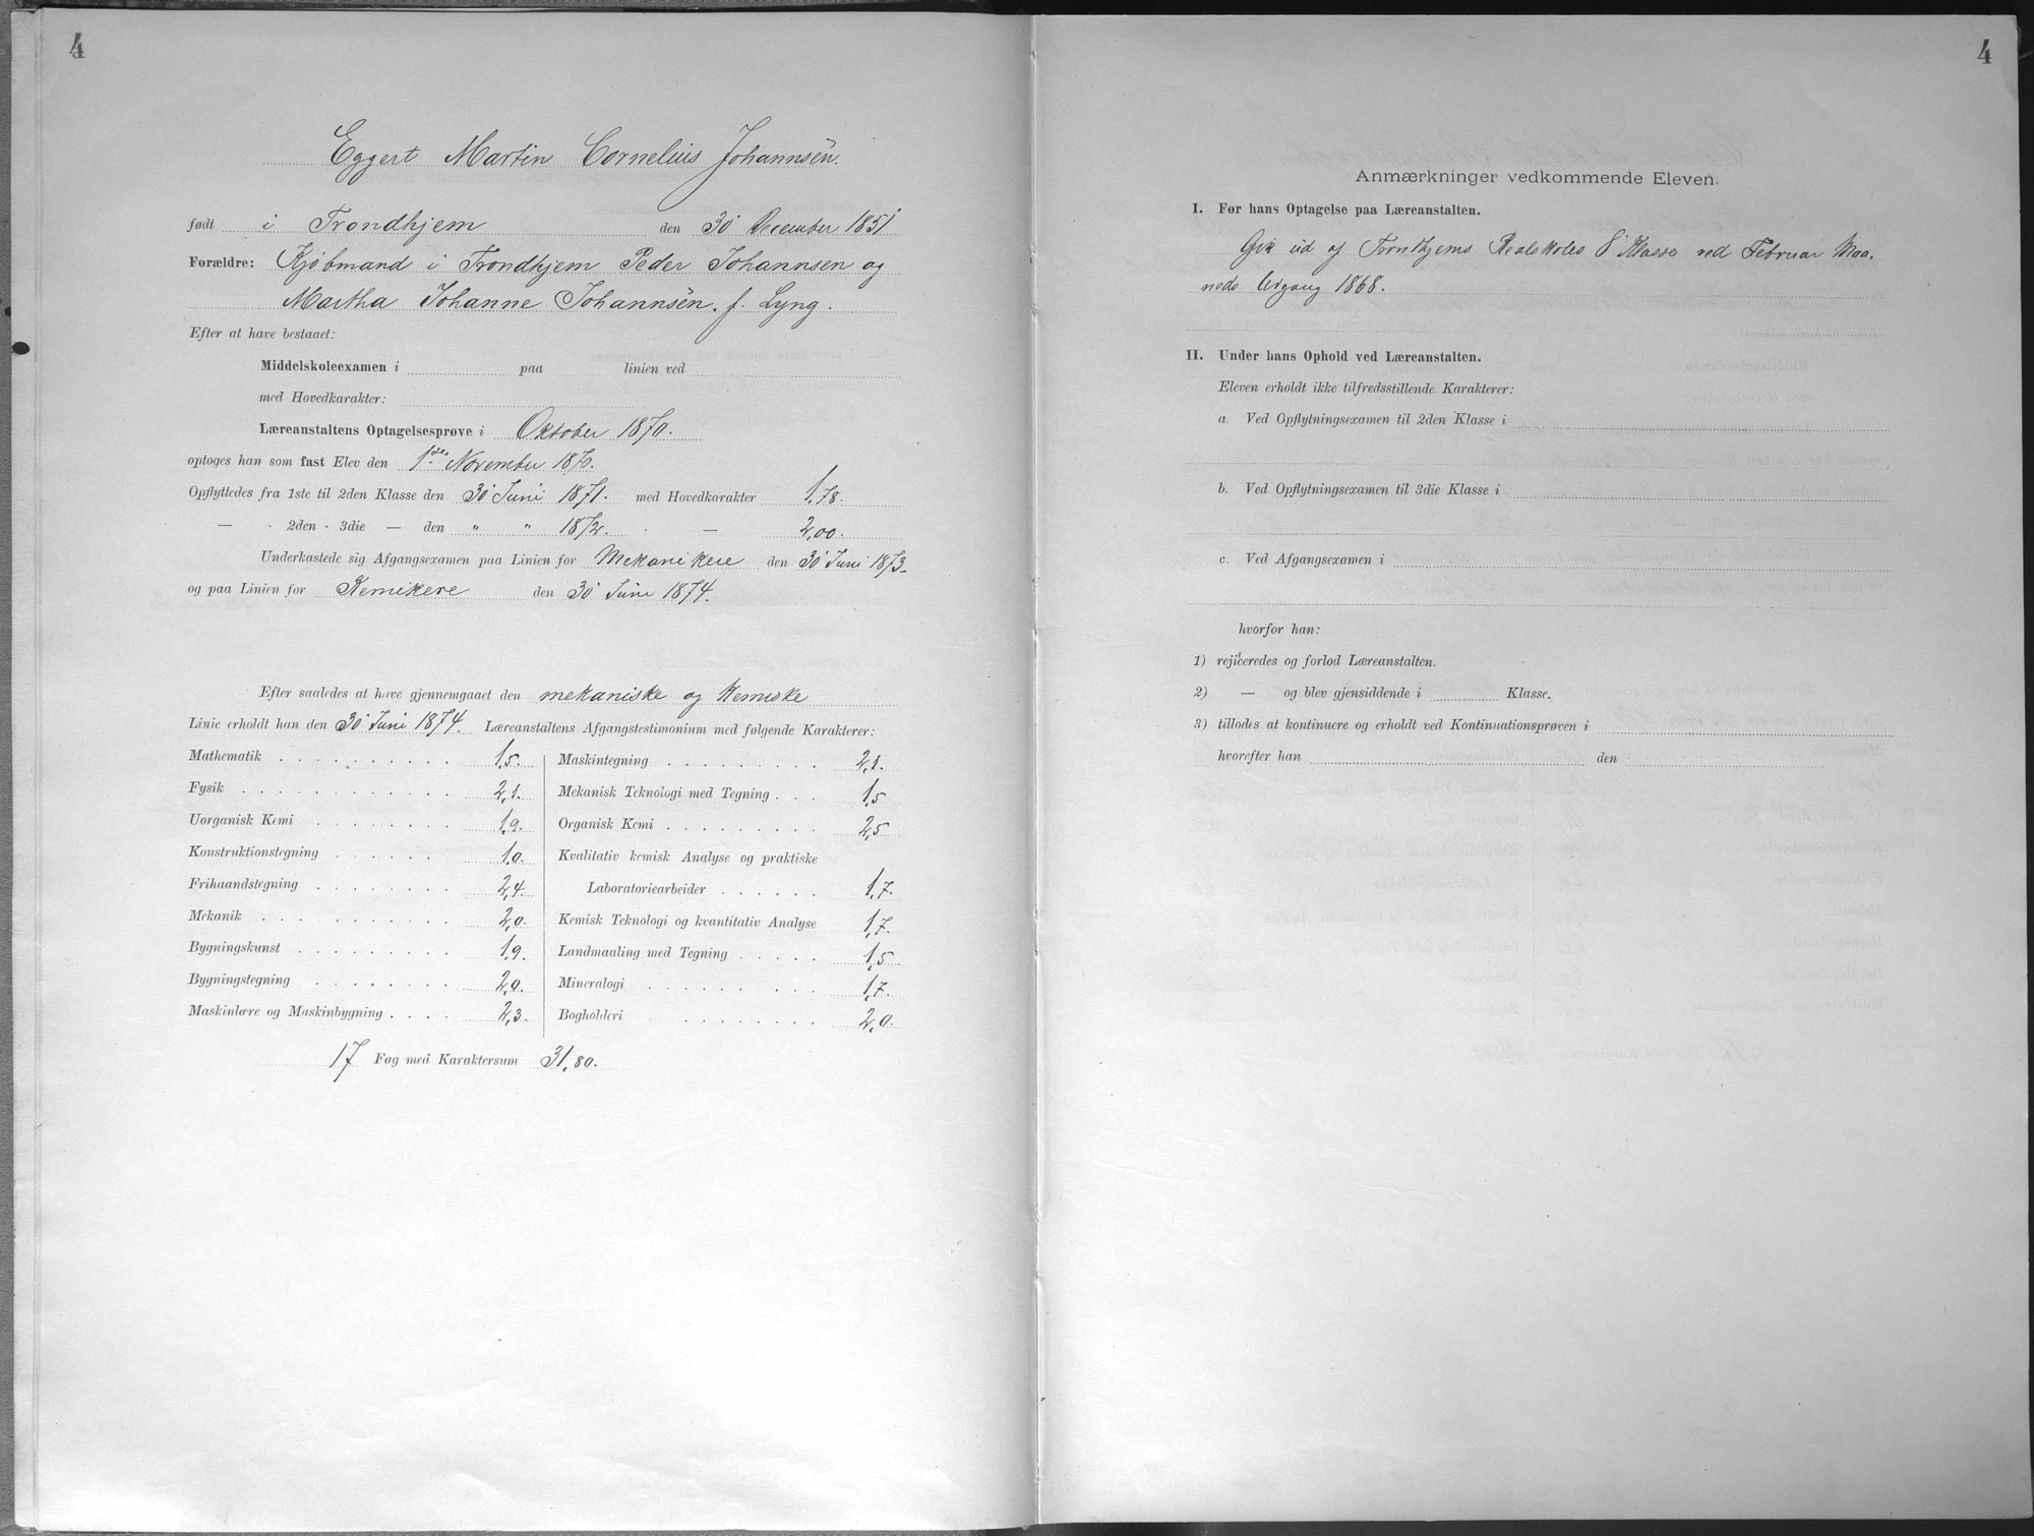 4
Eggert Martin Cornelius Johannsen.
født i Trondhjem den 30 December 1851
Forældre: Kjøbmand i Trondhjem Peder Johannsen og
Martha Johanne Johannsen. f. Lyng.
Efter at have bestaaet:
Middelskoleexamen i paa linien ved
med Hovedkarakter:
Læreanstaltens Optagelsesprøve i Oktober 1870.
optoges han som fast Elev den 1ste November 1870.
Opflyttedes fra 1ste til 2den Klasse den 30 Juni 1871. med Hovedkarakter 1,78.
— - 2den - 3die — den " " 1872. - — 2,00.
Underkastede sig Afgangsexamen paa Linien for Mekanikere den 30 Juni 1873.
og paa Linien for Kemikere den 30 Juni 1874.
Efter saaledes at have gjennemgaaet den mekaniske og kemiske
Linie erholdt han den 30 Juni 1874. Læreanstaltens Afgangstestimonium med følgende Karakterer:
Mathematik 1,5.
Fysik 2,1.
Uorganisk Kemi 1,9.
Konstruktionstegning 1,0.
Frihaandstegning 2,4.
Mekanik 2,0.
Bygningskunst 1,9.
Bygningstegning 2,0.
Maskinlære og Maskinbygning 2,3.
Maskintegning 2,1.
Mekanisk Teknologi med Tegning 1,5
Organisk Kemi 2,5
Kvalitativ kemisk Analyse og praktiske
Laboratoriearbeider 1,7.
Kemisk Teknologi og kvantitativ Analyse 1,7.
Landmaaling med Tegning 1,5
Mineralogi 1,7.
Bogholderi 2,0.
17 Fag med Karaktersum 31,80.
4
Anmærkninger vedkommende Eleven.
I. Før hans Optagelse paa Læreanstalten.
Gik ud af Trondhjems Realskoles 8 Klasse ved Februar Maa-
neds Udgang 1868.
II. Under hans Ophold ved Læreanstalten.
Eleven erholdt ikke tilfredsstillende Karakterer:
a. Ved Opflytningsexamen til 2den Klasse i
b. Ved Opflytningsexamen til 3die Klasse i
c. Ved Afgangsexamen i
hvorfor han:
1) rejiceredes og forlod Læreanstalten.
2) — og blev gjensiddende i Klasse.
3) tillodes at kontinuere og erholdt ved Kontinuationsprøven i
hvorefter han den